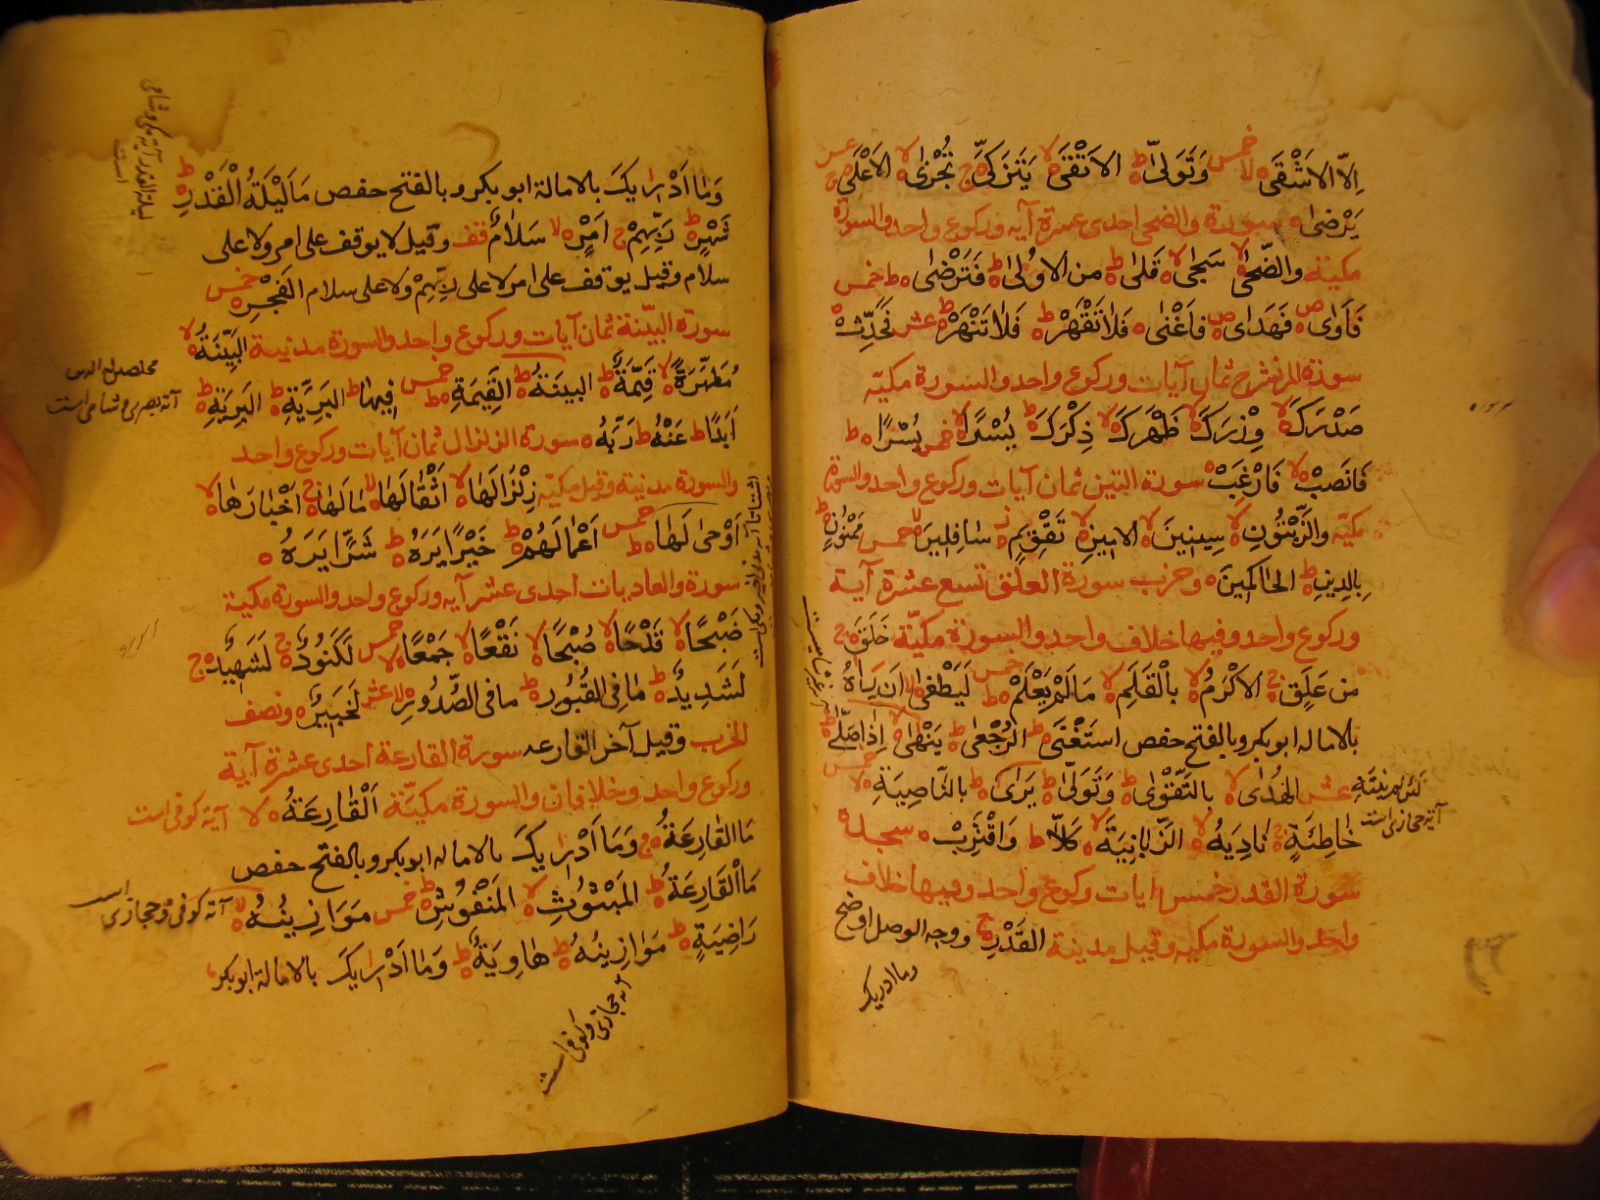 اِلّا الاَشْقَى لا خمس وَتَوَلّىٰ ط الاَتْقَى لا يَتَزَكّىٰ ج تُجْزىٰ لا الاَعْلٰى ج عشر
يَرْضىٰ سورة والضحى احدى عشرة آيه وركوع واحد والسورة
مكية والضّحىٰ لا سَجىٰ لا قَلىٰ ط من الاوُلىٰ ط فَتَرْضىٰ ط خمس
فَآوىٰ ص فَهَدىٰ ص فَاَغْنىٰ فَلا تَقْهَرْ ط فَلا تَنْهَرْ ط عشر فَحَدِّثْ
سورة الم نشرح ثمان آيات وركوع واحد والسورة مكيّه
صَدْرَكَ لا وِزْرَكَ لا ظَهْرَكَ لا ذِكْرَكَ ط يُسْرًا لا خمس يُسْرًا ط
فَانصَبْ لا فَارْغَبْ سورة التين ثمان آيات وركوع واحد والسورة
مكيّه والزَّيْتُونِ لا سِينِينَ لا الامِينِ لا تَقْوِيمٍ ز سافِلِينَ لا خمس مَمْنُونٍ ط
بِالدِينِ ط الحَاكِمِينَ وحزب سورة العلق تسع عشرة آية
وركوع واحد وفيها خلاف واحد والسورة مكيّة خَلَقَ ج
مِن عَلَقٍ ج الاَكْرَمُ لا بِالْقَلَمِ لا مَالَمْ يَعْلَمْ ط خمس لَيَطْغىٰ لا اَن رَاٰهُ
بلاماله ابوبكر وبالفتح حفص استَغْنىٰ ط الرُّجْعىٰ ط يَنْهىٰ لا اِذا صَلّىٰ ط
الهُدىٰ لا بالتَّقْوىٰ ط وَتَوَلّىٰ ط يَرىٰ ط بالنَّاصِيَةِ لا خمس
خاطِئَةٍ ج نادِيَهُ لا الزَّبانِيَةَ لا كَلّا ط وَاقْتَرِبْ سجده
سورة القدر خمس آيات وركوع واحد وفيها خلاف
واحد والسورة مكيه وقيل مدينة القَدْرِ ج ووجه الوصل اوضح
وما ادريك
لئن لم ينته عشر
آية حجازى است
وَمٰا اَدْرٰيكَ بالامالة ابوبكر وبالفتح حفص مَا لَيْلَةُ الْقَدْرِ ط
شَهْرٍ ط رَبِّهِمْ ج اَمْرٍ لا سَلامٌ قف وقيل لا يوقف على امر ولا على
سلام وقيل يوقف على امر لا على رَبِّهِمْ ولا على سلام الفَجْرِ خمس
سورة البيّنة ثمان آيات وركوع واحد والسورة مدنية البَيِّنَةُ لا
مُطَهَّرَةً لا قَيِّمَةٌ ط البينَةُ ط القَيِّمَةِ ط خمس فِيهٰا ط البَرِيَّةِ ط البَرِيَّةِ ط
اَبَدًا ط عَنْهُ ط رَبَّهُ سورة الزلزال ثمان آيات وركوع واحد
والسورة مدنية وقيل مكيّه زِلْزالَهَا لا اَثْقالَهَا لا مَالَهَا ج اَخْبارَها لا
اَوْحىٰ لَهَا ط خمس اَعْمالَهُمْ ط خَيْرًا يَرَهُ ط شَرًّا يَرَهُ
سورة والعاديات احدى عشر آيه وركوع واحد والسورة مكية
ضَبْحًا لا قَدْحًا لا صُبْحًا لا نَقْعًا لا جَمْعًا لا خمس لَكَنُودٌ ج لَشَهِيدٌ ج
لَشَدِيدٌ ط مٰا فى القُبُورِ لا ما فى الصُّدُورِ لا عشر لَخَبِيرٌ ونصف
الحزب وقيل آخر القارعه سورة القارعة احدى عشرة آية
وركوع واحد وخلافان والسورة مكيّة اَلْقٰارِعَةُ لا آية كوفى است
مَا القٰارِعَةُ ج وَمَا اَدْرٰيكَ بالاماله ابوبكر وبالفتح حفص
مَا الْقَارِعَةُ ط المَبْثُوثِ لا المَنْفُوشِ ط خمس مَوَازِينُهُ لا آية كوفى وحجازى است
رَاضِيَةٍ ط مَوٰازِينُهُ لا هٰاوِيَةٌ ط وَمٰا اَدْرٰيكَ بالامالة ابوبكر
آية حجازى وكوفى است
مخلصين له الدين
آية بصرى وشامى است
ليلة القدر آية مكى وشامى
است